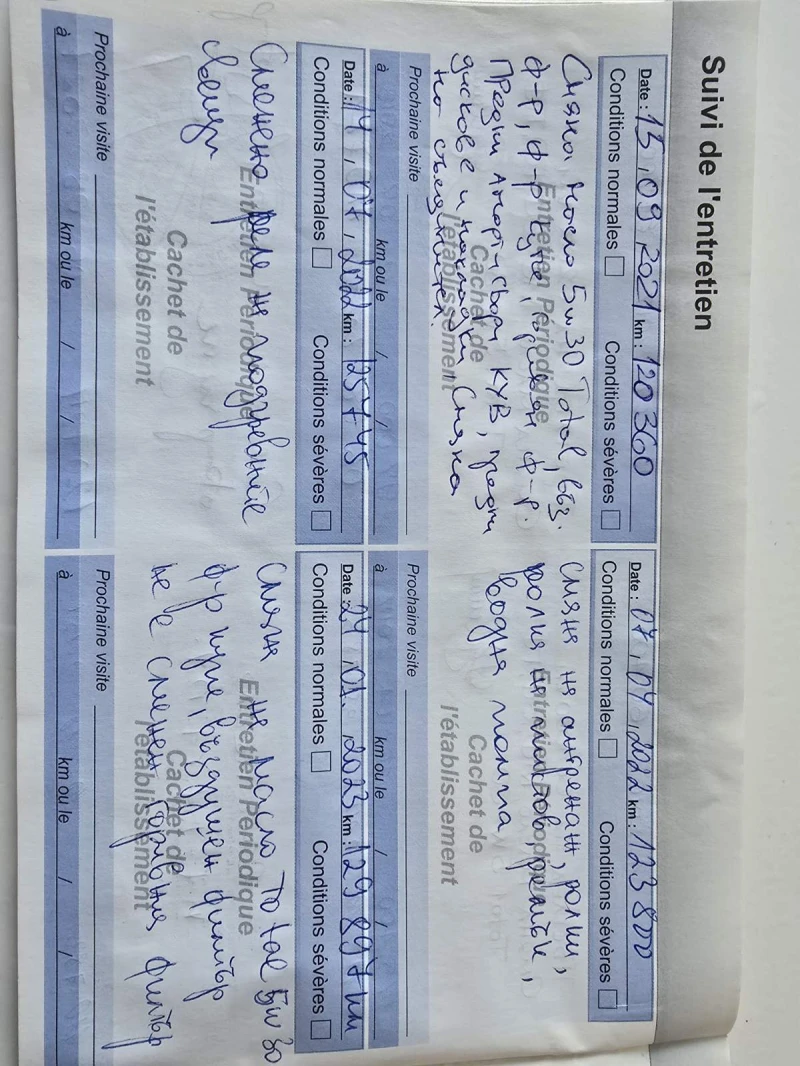 Suivi de l'entretien
Date : 15.09.2021 km : 120360
Conditions normales Conditions sévères
Смяна масло 5w30 Total, въз.
ф-р, ф-р купе, горивен ф-р.
Предни KYB, предни
дискове и накладки. Смяна
на
Entretien Périodique
Cachet de
l'établissement
Prochaine visite
à km ou le / /
Date : 07.04.2022 km : 123800
Conditions normales Conditions sévères
Смяна на ангренаж, ролки,
ролка ремък,
водна помпа
Entretien Périodique
Cachet de
l'établissement
Prochaine visite
à km ou le / /
Date : 14.07.2022 km : 125745
Conditions normales Conditions sévères
Сменено реле на подгревните
свещи
Entretien Périodique
Cachet de
l'établissement
Prochaine visite
à km ou le / /
Date : 24.01.2023 km : 129897 км
Conditions normales Conditions sévères
Смяна на масло Total 5w30
ф-р купе, въздушен филтър
не е сменен горивния филтър
Entretien Périodique
Cachet de
l'établissement
Prochaine visite
à km ou le / /